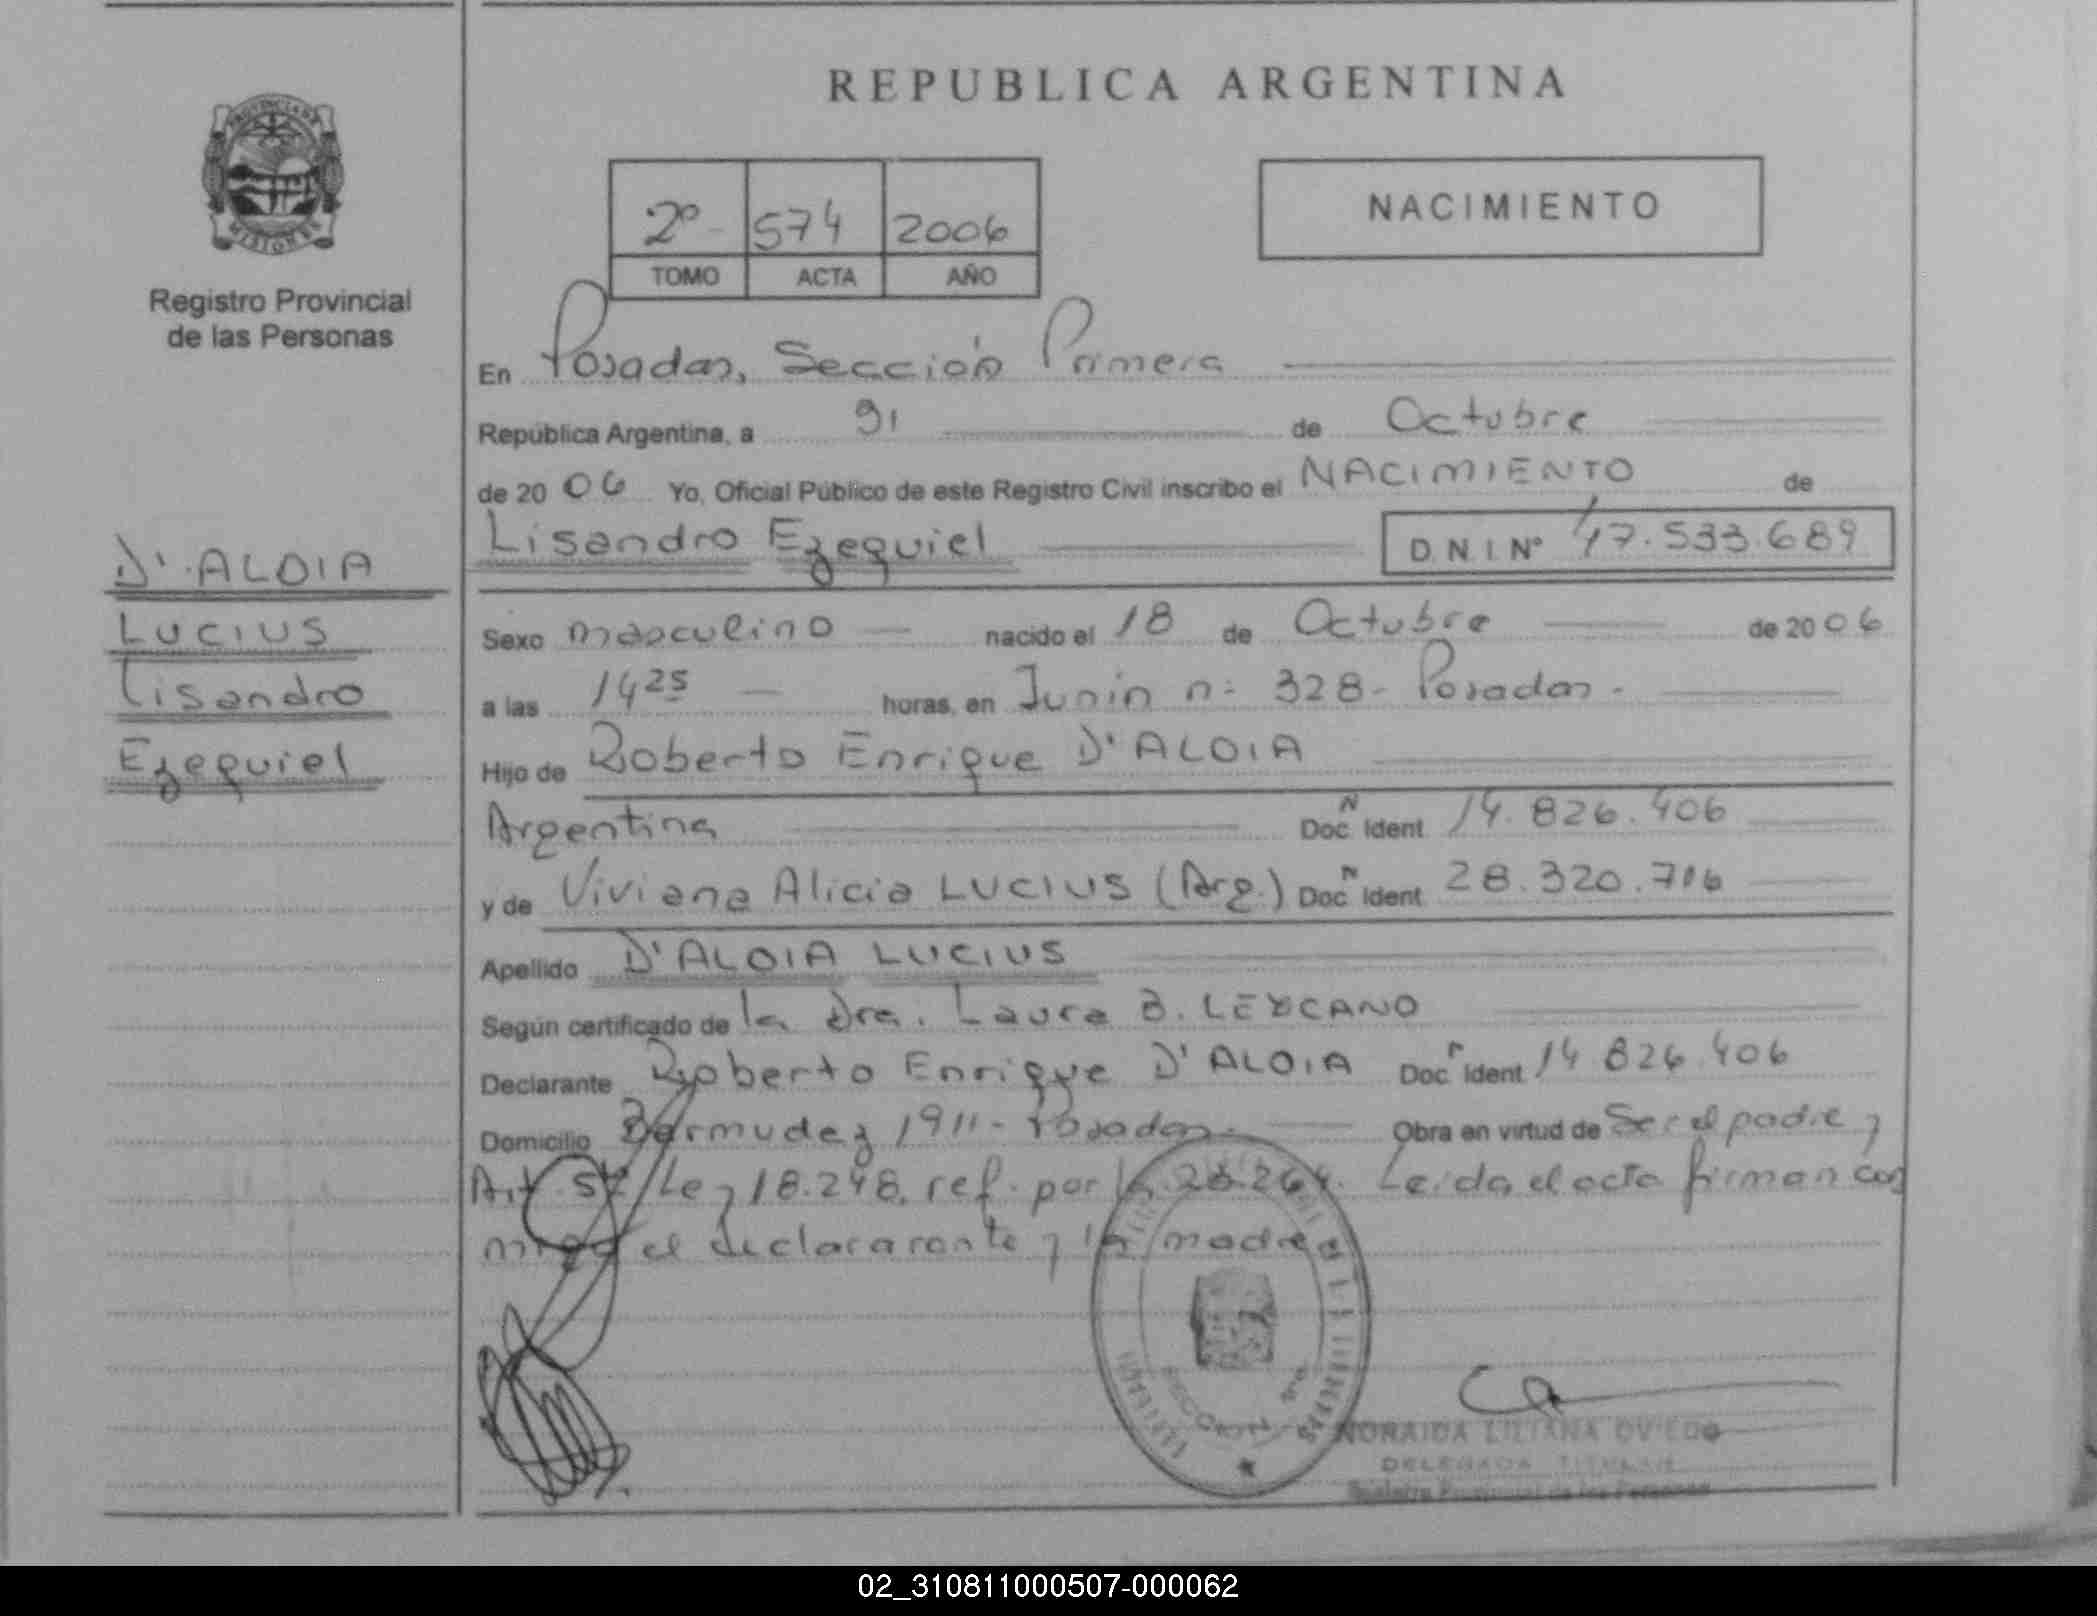 REPUBLICA ARGENTINA
PROVINCIA DE
MISIONES
Registro Provincial
de las Personas
2º 574 2006
TOMO ACTA AÑO
NACIMIENTO
En Posadas, Sección Primera
República Argentina, a 31 de Octubre
de 2006 Yo, Oficial Público de este Registro Civil inscribo el NACIMIENTO de
Lisandro Ezequiel D.N.I Nº 47.533.689
D'ALOIA
LUCIUS
Lisandro
Ezequiel
Sexo masculino nacido el 18 de Octubre de 2006
a las 14 25 horas, en Junin n: 328- Posadas.
Hijo de Roberto Enrique D'ALOIA
Argentina Doc. N Ident 14.826.406
y de Viviana Alicia LUCIUS (Arg.) Doc. N Ident 28.320.716
Apellido D'ALOIA LUCIUS
Según certificado de la Dra. Laura B. LEZCANO
Declarante Roberto Enrique D'ALOIA Doc. Ident 14 826.406
Domicilio Bermudez 1911- Posadas. Obra en virtud de Ser el padre y
Art. 5º Ley 18.248, ref. por la 23.264. Leída el acta firman con
migo el declararante y la madre
SECCION
NORAIDA LILIANA OVIEDO
DELEGADA TITULAR
Registro Provincial de las Personas
02_310811000507-000062